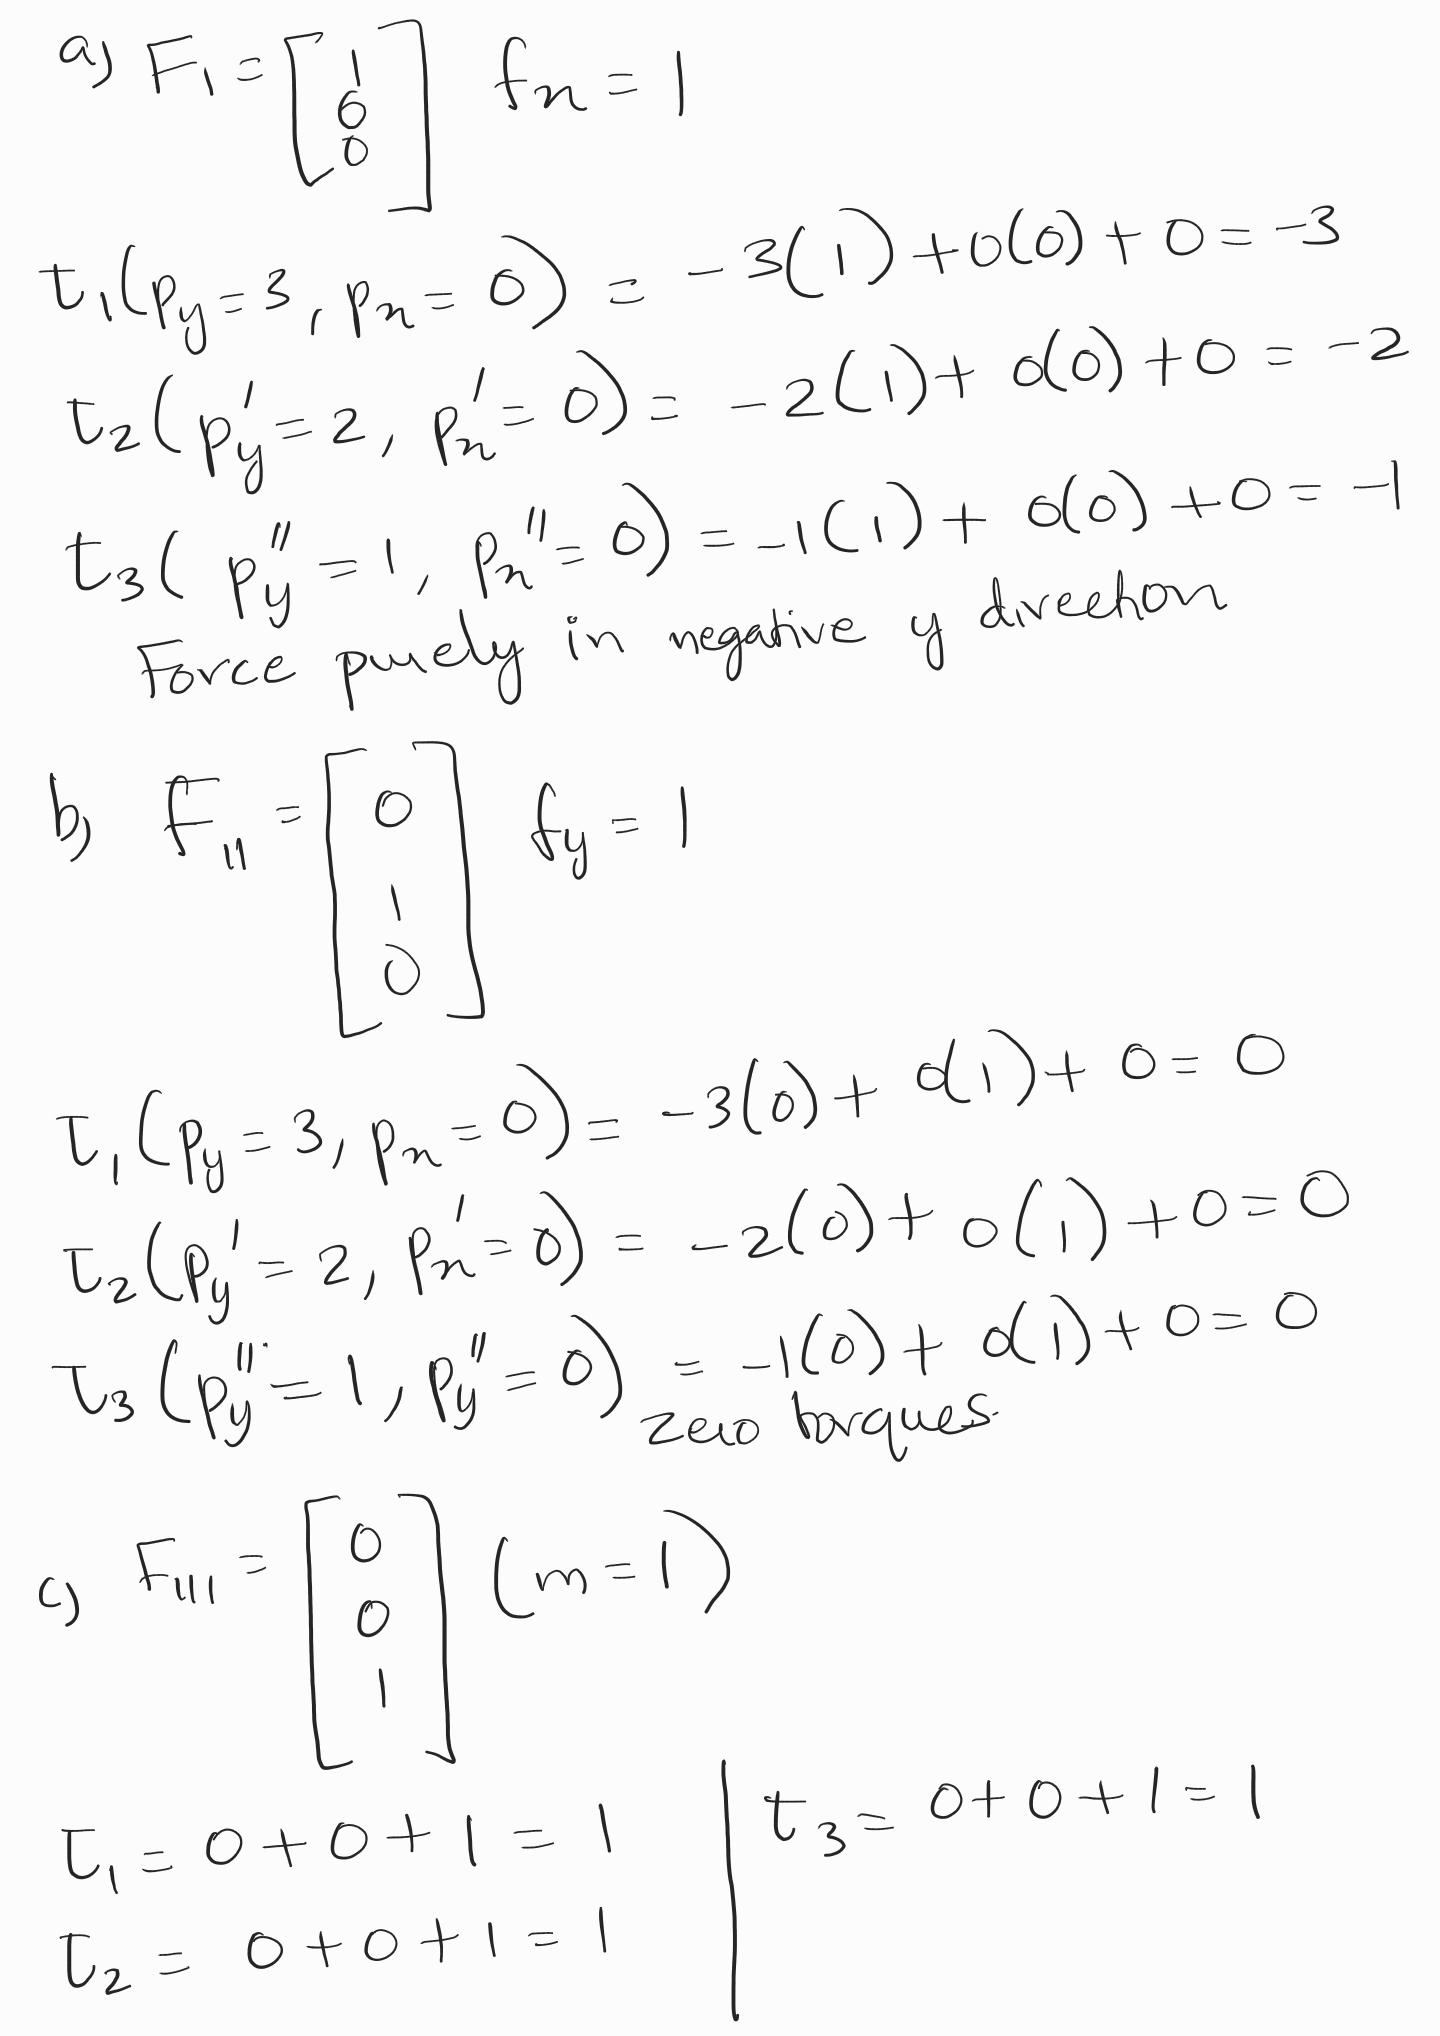 a) F₁ = [1 0 0] fx = 1
τ₁(py = 3, px = 0) = -3(1) + 0(0) + 0 = -3
τ₂(py' = 2, px' = 0) = -2(1) + 0(0) + 0 = -2
τ₃(py'' = 1, px'' = 0) = -1(1) + 0(0) + 0 = -1
Force purely in negative y direction
b) F₁₁ = [0 1 0] fy = 1
τ₁(py = 3, px = 0) = -3(0) + 0(1) + 0 = 0
τ₂(py' = 2, px' = 0) = -2(0) + 0(1) + 0 = 0
τ₃(py'' = 1, py'' = 0) = -1(0) + 0(1) + 0 = 0
zero torques
c) F₁₁₁ = [0 0 1] (m = 1)
τ₁ = 0 + 0 + 1 = 1
τ₂ = 0 + 0 + 1 = 1
τ₃ = 0 + 0 + 1 = 1